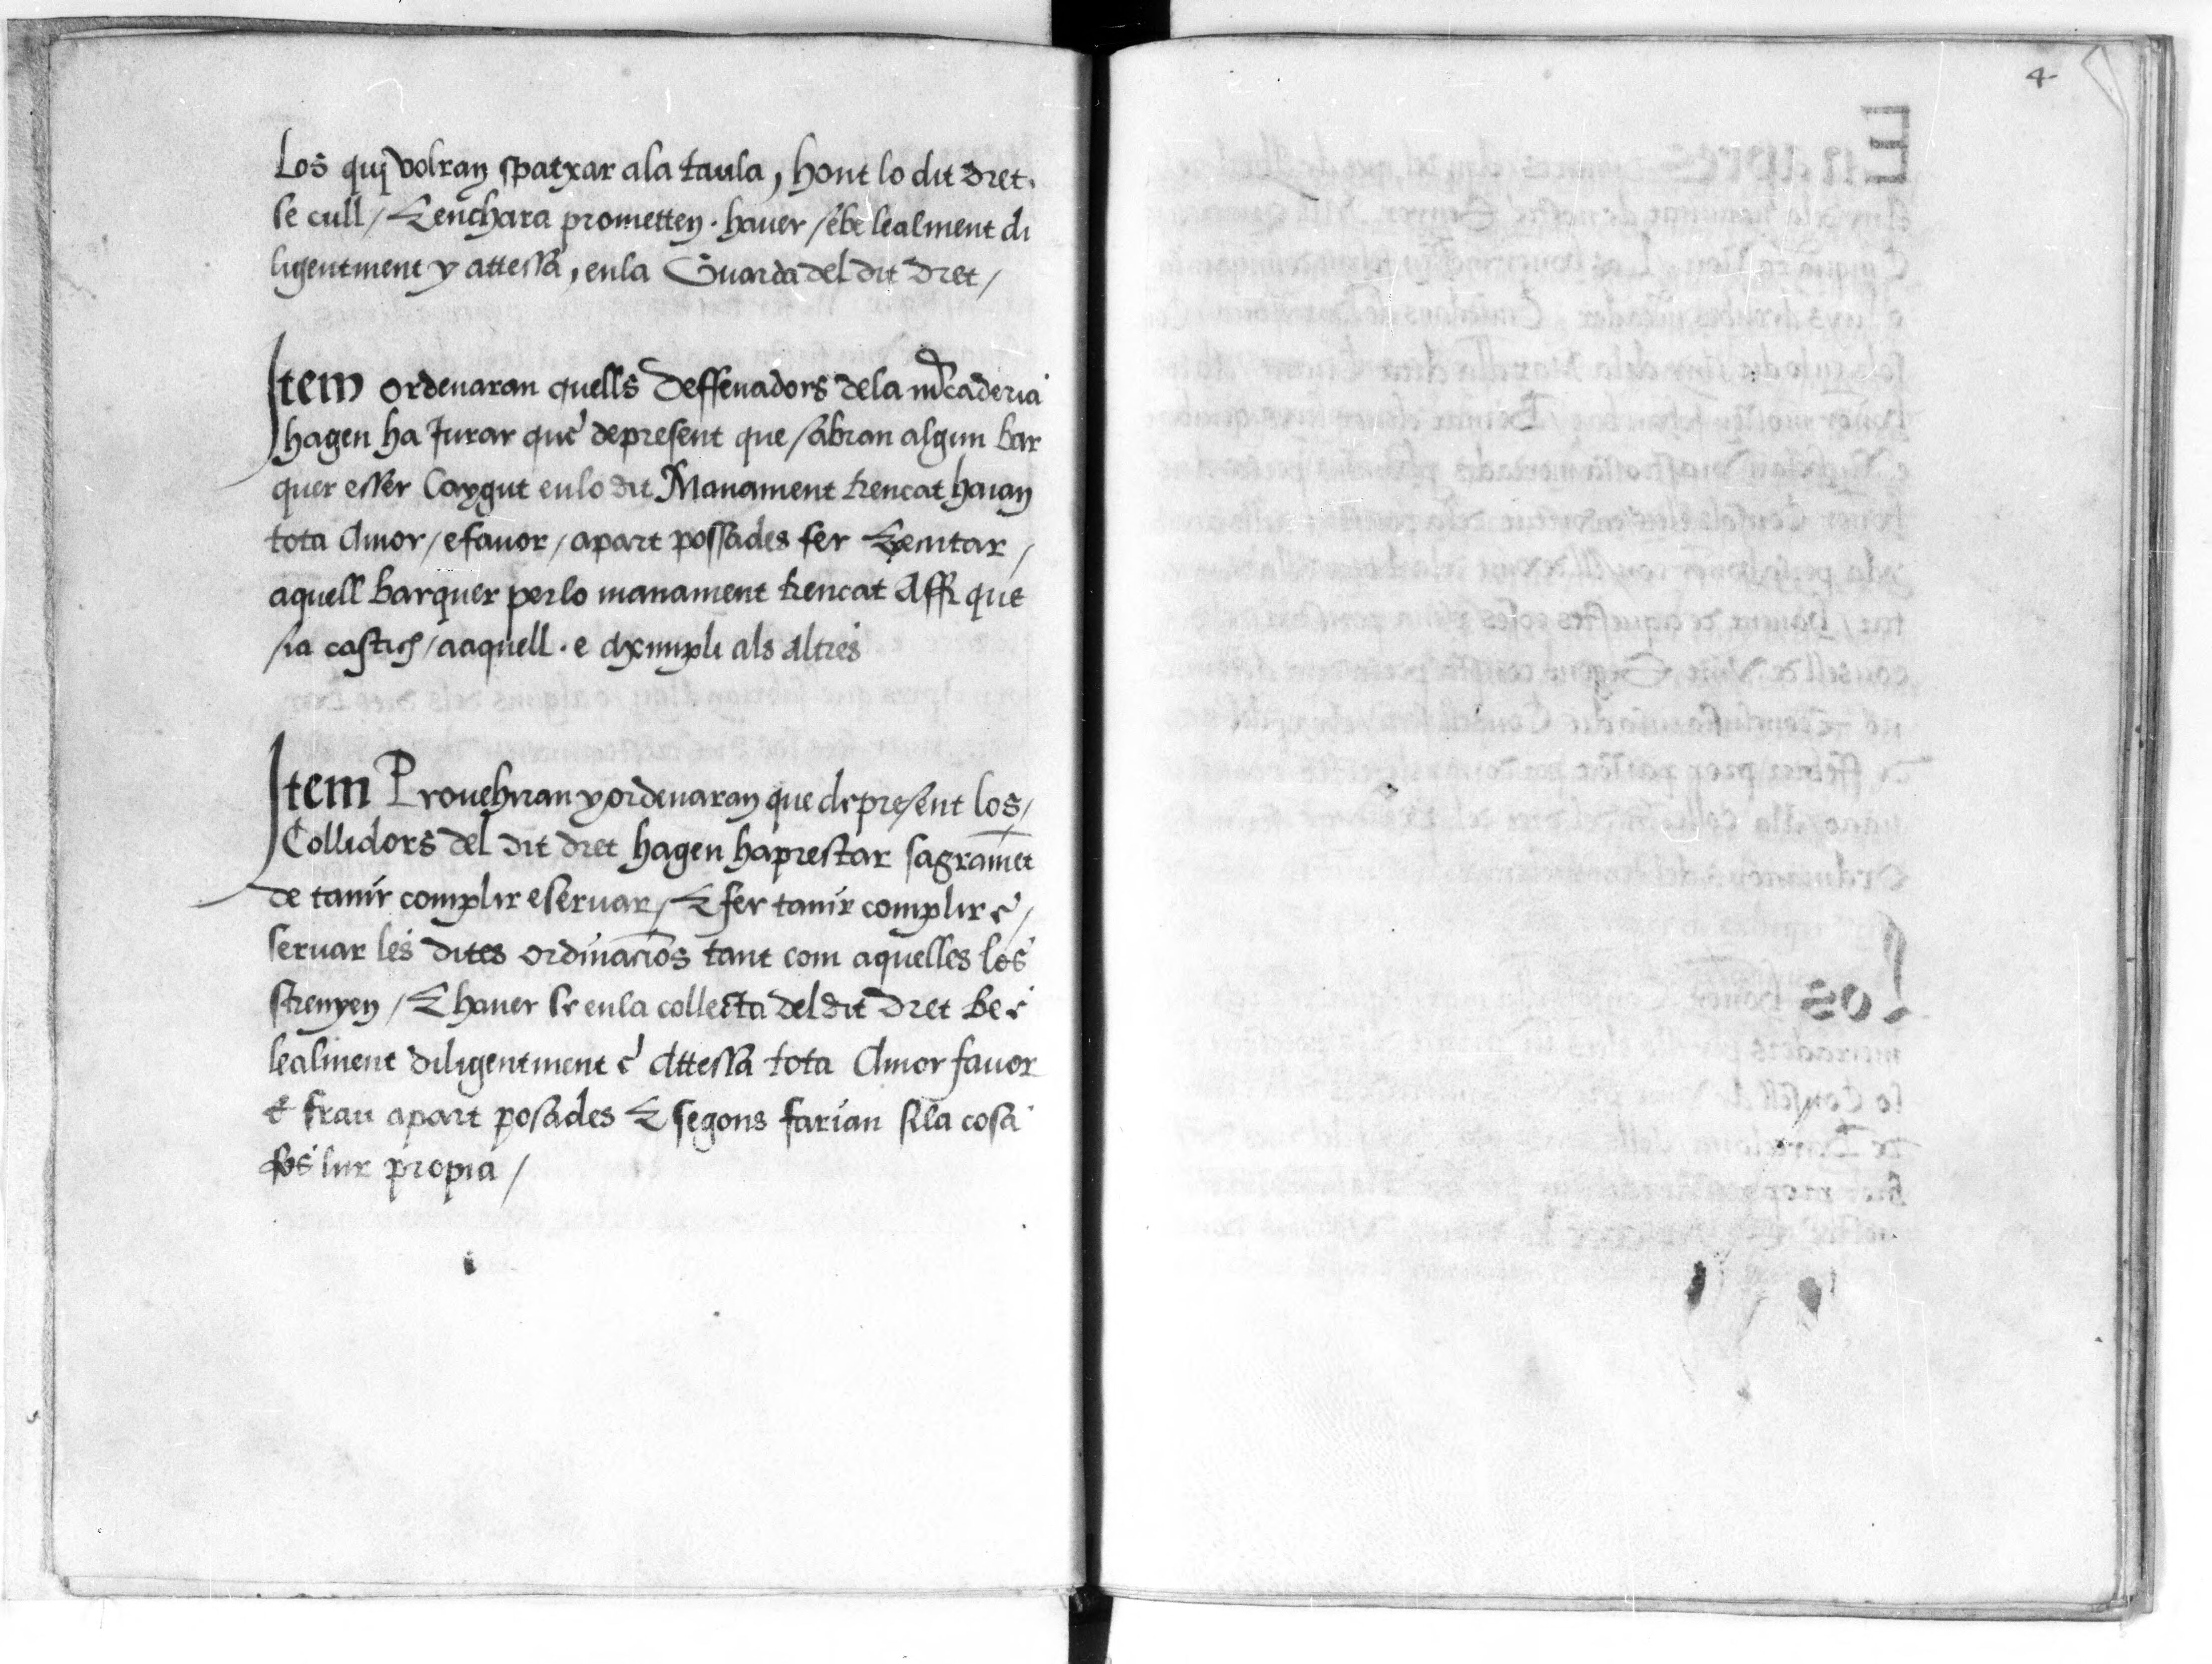 los qui volran spatxar ala taula, hont lo dit dret.
se cull / E enchara prometten · hauer / e be lealment di
ligentment y attessa, enla Guarda del dit dret /
Item ordenaran quells deffenadors dela mꝰcaderia
hagen ha Jurar que depresent que / sabran algun bar
quer esser Caygut en lo dit Manament trencat haian
tota Amor / e fauor / apart possades fer Exeuutar /
aquell barquer per lo manament trencat Affi que
sia castich / aaquell · e exempli als altres
Item Prouehiran y ordenaran que depresent los /
Collidors del dit dret hagen haprestar sagramēt
de tanir complir e seruar / E fer tanir complir e /
seruar les dites ordinaciōs tant com aquelles los
strenyen / E hauer se en la collecta del dit dret be e
lealment diligentment e attessa tota Amor fauor
e frau apart posades E segons farian si la cosa
fos lur propia /
4